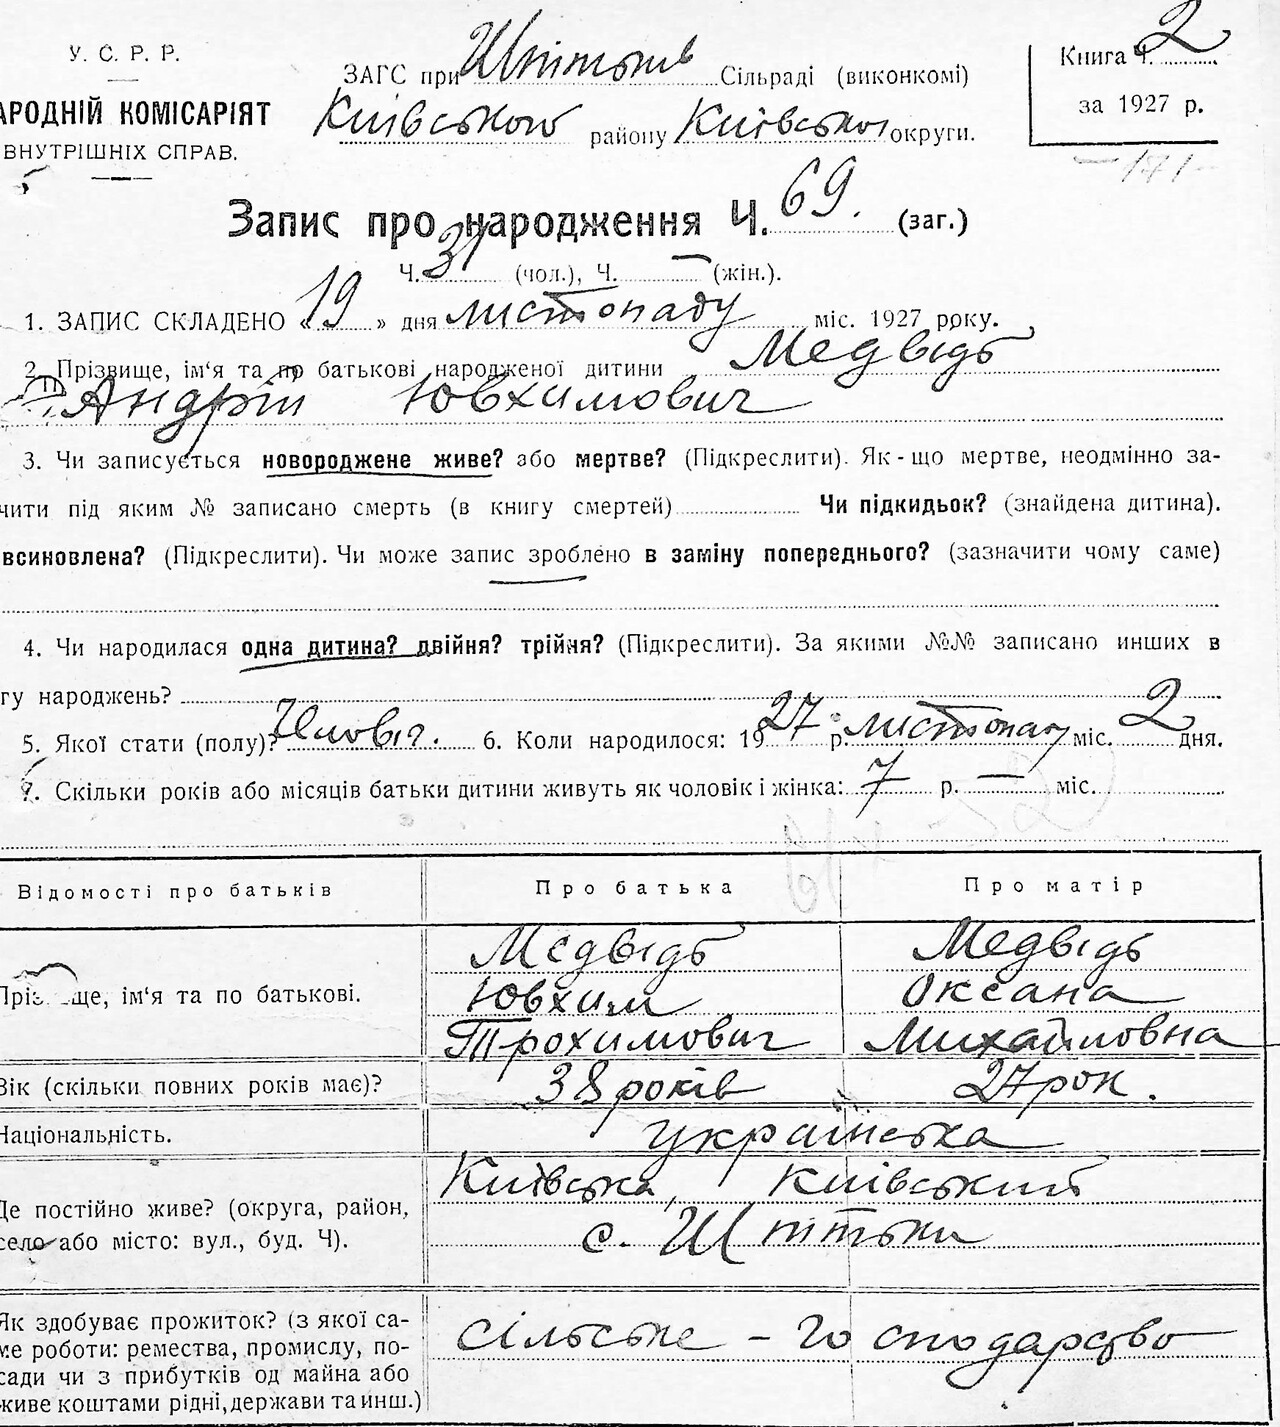 У. С. Р. Р.
АРОДНІЙ КОМІСАРІЯТ
ВНУТРІШНІХ СПРАВ.
ЗАГС при Шпітьків Сільраді (виконкомі)
Київського району Київської округи.
Книга Ч. 2
за 1927 р.
—171—
Запис про народження Ч. 69. (заг.)
Ч. 37 (чол.), Ч. — (жін.).
1. ЗАПИС СКЛАДЕНО « 19 » дня листопаду міс. 1927 року.
2. Прізвище, ім'я та по батькові народженої дитини Медвідь
Андрій Ювхимович
3. Чи записується новороджене живе? або мертве? (Підкреслити). Як-що мертве, неодмінно за-
чити під яким № записано смерть (в книгу смертей) Чи підкидьок? (знайдена дитина).
всиновлена? (Підкреслити). Чи може запис зроблено в заміну попереднього? (зазначити чому саме)
4. Чи народилася одна дитина? двійня? трійня? (Підкреслити). За якими №№ записано инших в
гу народжень?
5. Якої стати (полу)? Чоловіч. 6. Коли народилося: 1927 р. листопаду міс. 2 дня.
7. Скільки років або місяців батьки дитини живуть як чоловік і жінка: 7 р. — міс.
Відомості про батьків Про батька Про матір
Прізвище, ім'я та по батькові. Медвідь Ювхим Трохимович Медвідь Оксана Михайловна
Вік (скільки повних років має)? 38 років 27 рок.
Національність. українська
Де постійно живе? (округа, район, Київська, Київський
село або місто: вул., буд. Ч). с. Шпітьки
Як здобуває прожиток? (з якої са- сільське - господарство
ме роботи: ремества, промислу, по-
сади чи з прибутків од майна або
живе коштами рідні, держави та инш.)